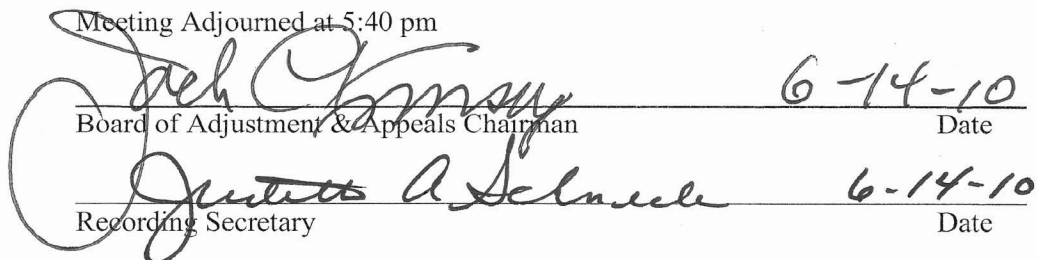 Meeting Adjourned at 5:40 pm
Jack 6-14-10
Board of Adjustment & Appeals Chairman Date
Judith A 6-14-10
Recording Secretary Date